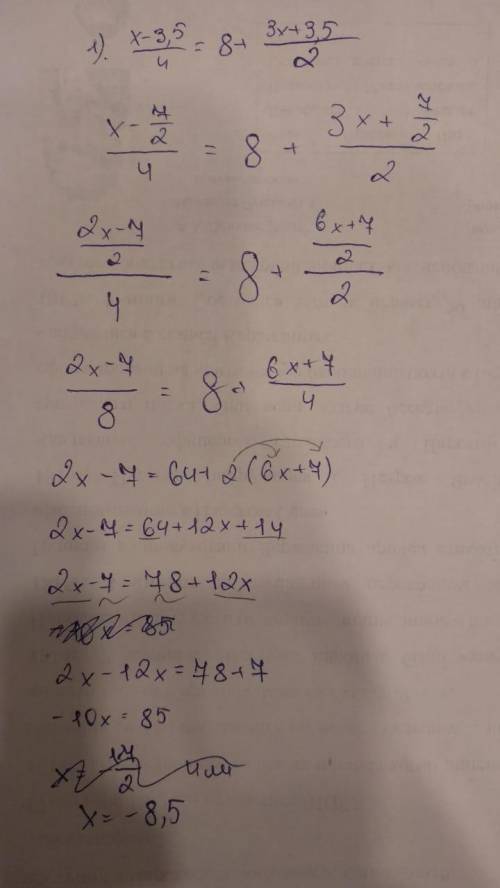 1). (x-3,5)/4 = 8+ (3x+3,5)/2
(x - 7/2)/4 = 8 + (3x + 7/2)/2
((2x-7)/2)/4 = 8 + ((6x+7)/2)/2
(2x-7)/8 = 8 + (6x+7)/4
2x-7 = 64+ 2(6x+7)
2x-7= 64+12x+14
2x-7= 78+12x
= 85
2x-12x=78+7
-10x= 85
x= 17/2 или
x= -8,5